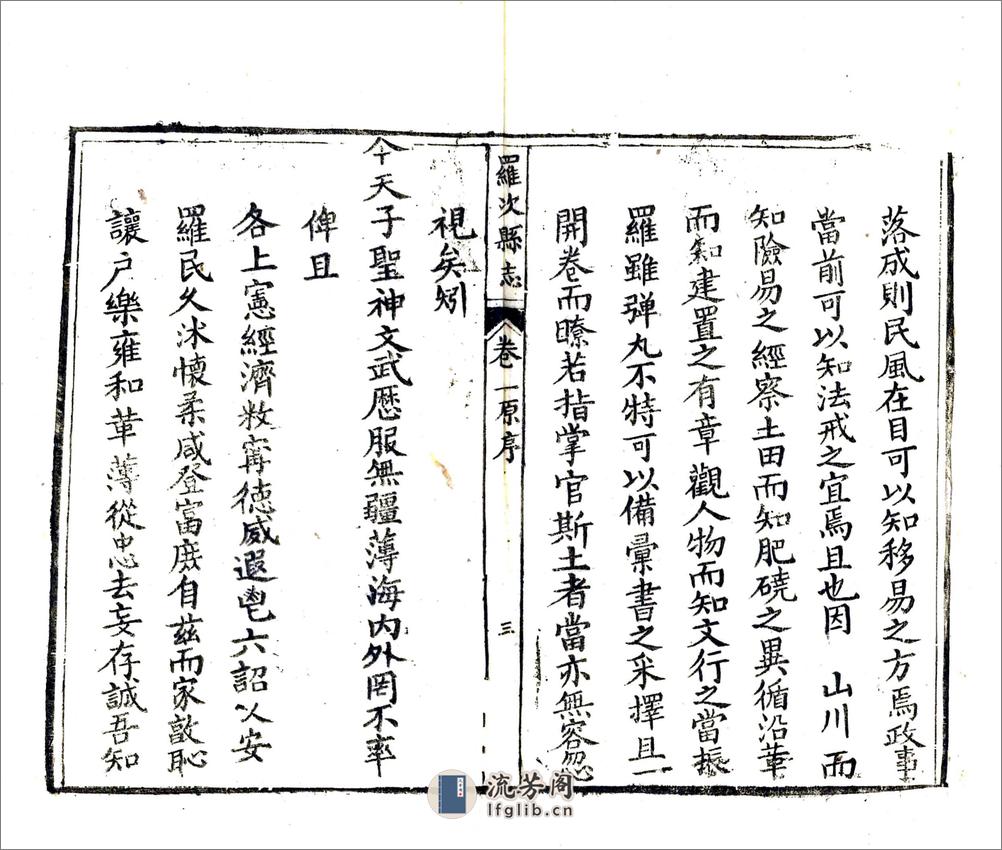 落成則民風在目可以知移易之方焉政事
當前可以知法戒之宜焉且也因 山川而
知險易之經察土田而知肥磽之異循沿革
而知建置之有章觀人物而知文行之當振
羅雖弹丸不特可以備彙書之采擇且一
開卷而瞭若指掌官斯土者當亦無容忽
羅次縣志 卷一原序 三
視矣矧
今天子聖神文武歷服無疆薄海内外罔不率
俾且
各上憲經濟救寧德威遐鬯六詔以安
羅民久沐懷柔咸登富庶自茲而家敦恥
讓户樂雍和革薄從忠去妄存誠吾知
流芳阁
lfglib.cn